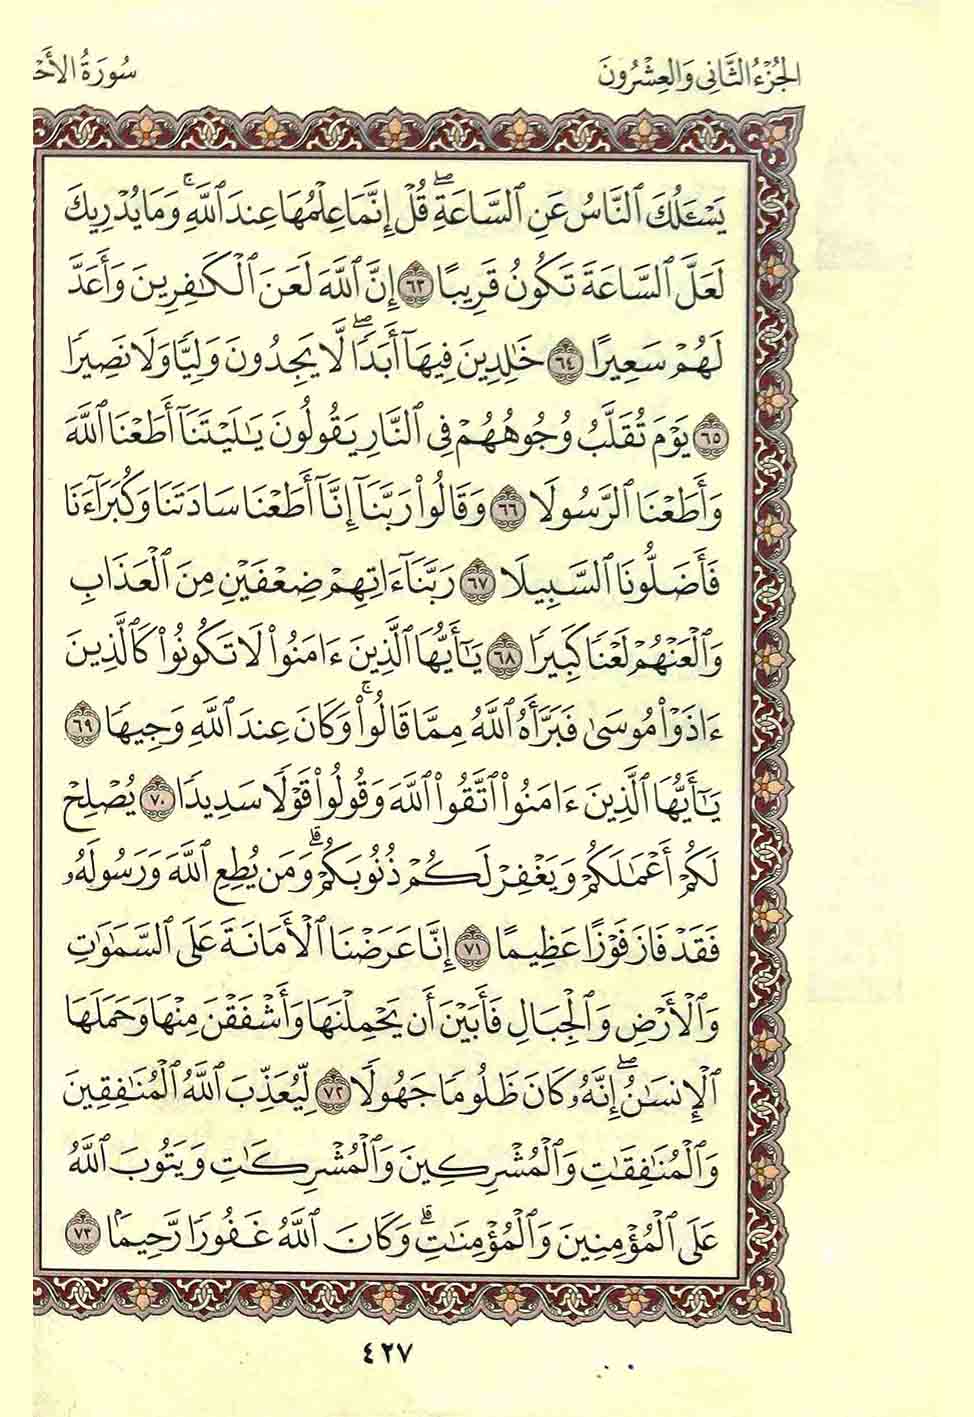 الجُزْءُ الثَّانِي وَالعِشْرُونَ
سُورَةُ الأَحْ
يَسْـَٔلُكَ ٱلنَّاسُ عَنِ ٱلسَّاعَةِۖ قُلْ إِنَّمَا عِلْمُهَا عِندَ ٱللَّهِۚ وَمَا يُدْرِيكَ
لَعَلَّ ٱلسَّاعَةَ تَكُونُ قَرِيبًا ٦٣ إِنَّ ٱللَّهَ لَعَنَ ٱلْكَٰفِرِينَ وَأَعَدَّ
لَهُمْ سَعِيرًا ٦٤ خَٰلِدِينَ فِيهَآ أَبَدًاۖ لَّا يَجِدُونَ وَلِيًّا وَلَا نَصِيرًا
٦٥ يَوْمَ تُقَلَّبُ وُجُوهُهُمْ فِى ٱلنَّارِ يَقُولُونَ يَٰلَيْتَنَآ أَطَعْنَا ٱللَّهَ
وَأَطَعْنَا ٱلرَّسُولَا ٦٦ وَقَالُوا۟ رَبَّنَآ إِنَّآ أَطَعْنَا سَادَتَنَا وَكُبَرَآءَنَا
فَأَضَلُّونَا ٱلسَّبِيلَا ٦٧ رَبَّنَآ ءَاتِهِمْ ضِعْفَيْنِ مِنَ ٱلْعَذَابِ
وَٱلْعَنْهُمْ لَعْنًا كَبِيرًا ٦٨ يَٰٓأَيُّهَا ٱلَّذِينَ ءَامَنُوا۟ لَا تَكُونُوا۟ كَٱلَّذِينَ
ءَاذَوْا۟ مُوسَىٰ فَبَرَّأَهُ ٱللَّهُ مِمَّا قَالُوا۟ۚ وَكَانَ عِندَ ٱللَّهِ وَجِيهًا ٦٩
يَٰٓأَيُّهَا ٱلَّذِينَ ءَامَنُوا۟ ٱتَّقُوا۟ ٱللَّهَ وَقُولُوا۟ قَوْلًا سَدِيدًا ٧٠ يُصْلِحْ
لَكُمْ أَعْمَٰلَكُمْ وَيَغْفِرْ لَكُمْ ذُنُوبَكُمْۗ وَمَن يُطِعِ ٱللَّهَ وَرَسُولَهُۥ
فَقَدْ فَازَ فَوْزًا عَظِيمًا ٧١ إِنَّا عَرَضْنَا ٱلْأَمَانَةَ عَلَى ٱلسَّمَٰوَٰتِ
وَٱلْأَرْضِ وَٱلْجِبَالِ فَأَبَيْنَ أَن يَحْمِلْنَهَا وَأَشْفَقْنَ مِنْهَا وَحَمَلَهَا
ٱلْإِنسَٰنُۖ إِنَّهُۥ كَانَ ظَلُومًا جَهُولًا ٧٢ لِّيُعَذِّبَ ٱللَّهُ ٱلْمُنَٰفِقِينَ
وَٱلْمُنَٰفِقَٰتِ وَٱلْمُشْرِكِينَ وَٱلْمُشْرِكَٰتِ وَيَتُوبَ ٱللَّهُ
عَلَى ٱلْمُؤْمِنِينَ وَٱلْمُؤْمِنَٰتِۗ وَكَانَ ٱللَّهُ غَفُورًا رَّحِيمًا ٧٣
٤٢٧